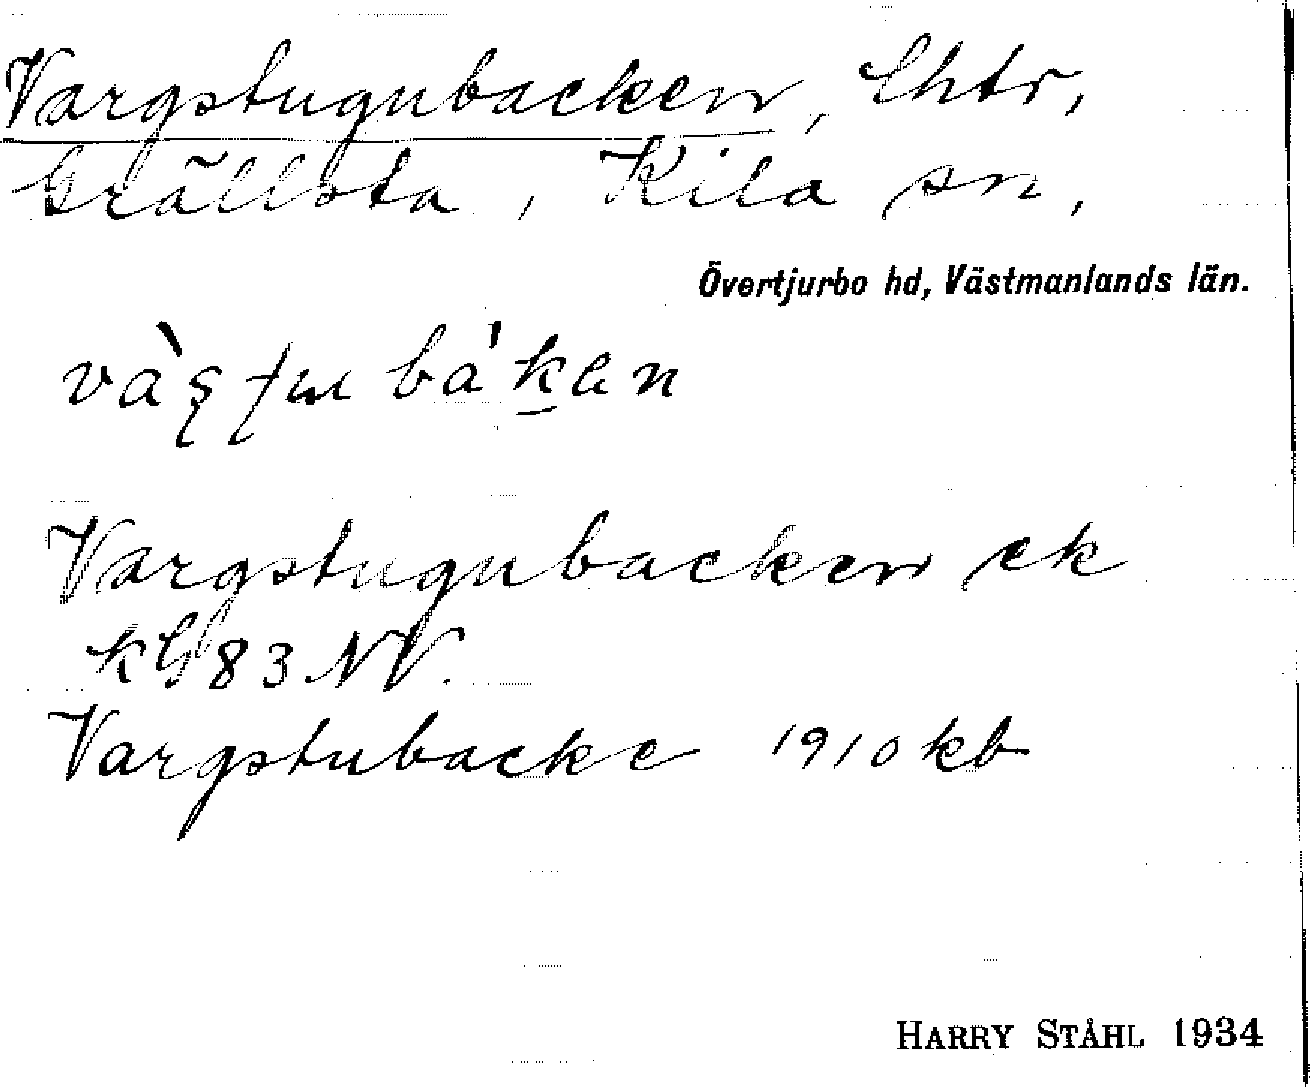 Vargstugubacken, lhtr,
Grällsta, Kila sn,
Övertjurbo hd, Västmanlands län.
Vargstugubacken ek
kG 83 NV.
Vargstubacke 1910 kb
HARRY STÅHL 1934